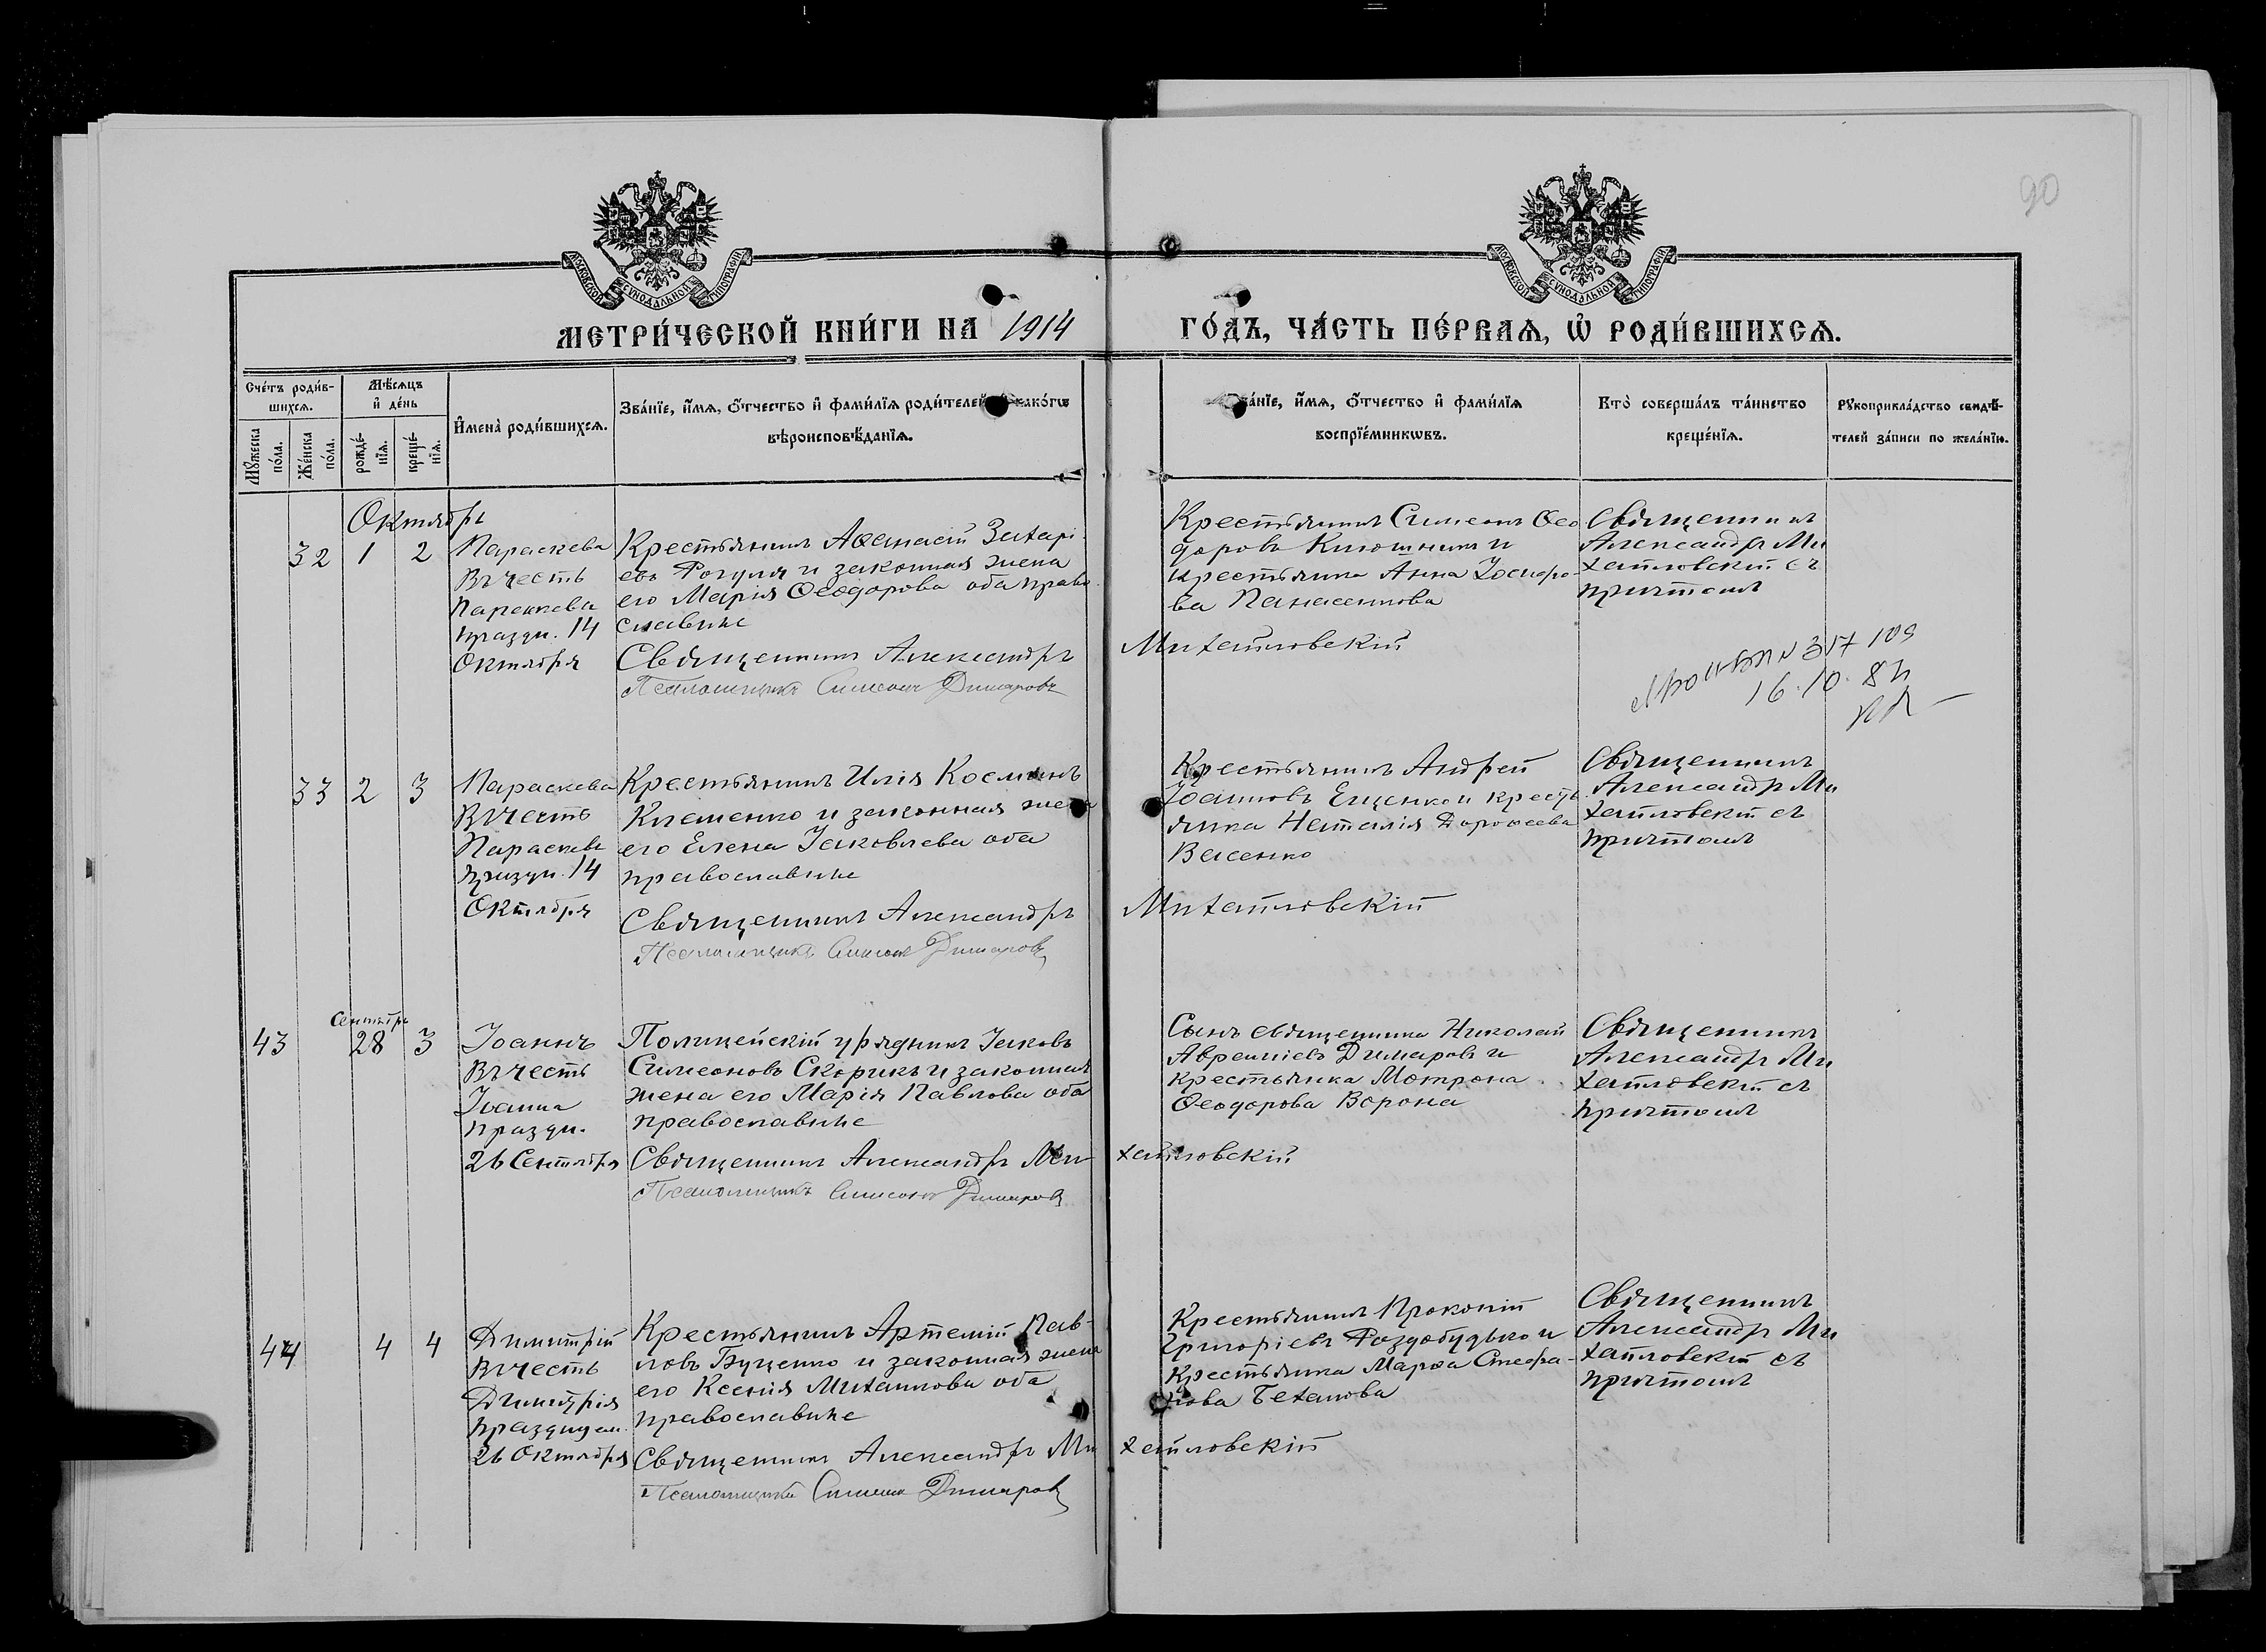 90
МОСКОВСКОЙ СѴНОДАЛЬНОЙ ТИПОГРАФІИ
МОСКОВСКОЙ СѴНОДАЛЬНОЙ ТИПОГРАФІИ
МЕТРИ́ЧЕСКОЙ КНИ́ГИ НА 1914 ГО́ДЪ, ЧА́СТЬ ПЕ́РВАѦ, Ѡ҆ РОДИ́ВШИХСѦ.
Сче́тъ роди́в-
шихсѧ.
Мꙋ́жеска по́ла.
Же́нска по́ла.
Мѣ́сѧцъ
и҆ де́нь
рожде́-
нїѧ.
креще́-
нїѧ.
И҆мена̀ роди́вшихсѧ.
Зва́нїе, и҆́мѧ, ѻ҆́тчество и҆ фами́лїѧ роди́телей како́гѡ
вѣроисповѣ́данїѧ.
ва́нїе, и҆́мѧ, ѻ҆́тчество и҆ фами́лїѧ
воспрїе́мникѡвъ.
Кто̀ соверша́лъ та́инство
креще́нїѧ.
Рꙋкоприкла́дство свидѣ́-
телей за́писи по жела́нїю.
Октябрь
32 1 2
Параскева
Въ честь
Параскева
праздн. 14
Октября
Крестьянинъ Аѳанасій Захарі-
евъ Рогуля и законная жена
его Марія Ѳеодорова оба право-
славные
Священникъ Александръ Михайловскій
Псаломщикъ Симеонъ Димаровъ
Крестьянинъ Симеонъ Ѳео
доровъ Ключникъ и
крестьянка Анна
ва Панасенкова
Священникъ
Александръ Ми
хайловскій съ
причтомъ
16.10.84
33 2 3
Параскева
Въ честь
Параскевы
праздн. 14
Октября
Крестьянинъ Илія Косминъ
Клеменко и законная жена
его Елена Іаковлева оба
православные
Священникъ Александръ Михайловскій
Псаломщикъ Симеонъ Димаровъ
Крестьянинъ Андрей
Іоанновъ Ещенко и кресть
янка Наталія Дороѳеева
Васенко
Священникъ
Александръ Ми
хайловскій съ
причтомъ
Сентябрь
43 28 3
Іоаннъ
Въ честь
Іоанна
праздн.
26 Сентября
Полицейскій урядникъ Іаковъ
Симеоновъ Скорикъ и законная
жена его Марія Павлова оба
православные
Священникъ Александръ Михайловскій
Псаломщикъ Симеонъ Димаровъ
Сынъ священника Николай
Димаровъ и
крестьянка Мотрона
Ѳеодорова Ворона
Священникъ
Александръ Ми
хайловскій съ
причтомъ
44 4 4
Димитрій
Въ честь
Димитрія
празднуем.
26 Октября
Крестьянинъ Артемій Пав-
ловъ Буценко и законная жена
его Ксенія Михаилова оба
православные
Священникъ Александръ Михайловскій
Псаломщикъ Симеонъ Димаровъ
Крестьянинъ Прокопій
Григоріевъ Роздобудько и
Крестьянка Марѳа Стефа-
нова Беханова
Священникъ
Александръ Ми
хайловскій съ
причтомъ